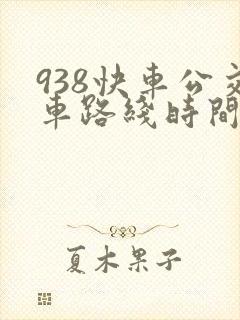 938快車公交
車路綫時間
夏木果子